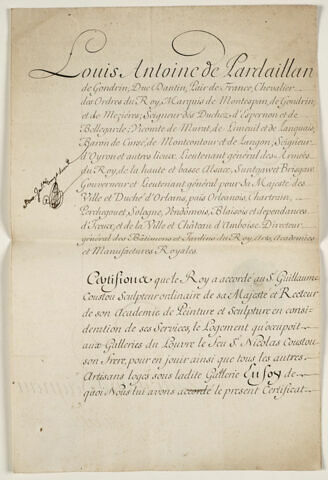 Louis Antoine de Pardaillan
de Gondrin, Duc D'antin, Pair de France, Chevalier
des Ordres du Roy, Marquis de Montespan, de Gondrin,
et de Mezieres, Seigneur des Duchez d'Espernon et de
Bellegarde, Vicomte de Murat, de
Baron de Curée, de Montcontour et de Langon, Seigneur
d'Oyron et autres lieux, Lieutenant général des Armées
du Roy, de la haute et basse Alsace, Suntgaw et Brisgaw
Gouverneur et Lieutenant général pour Sa Majesté des
Ville et Duché d'Orleans, païs Orleanois, Chartrain,
Perchegou et Sologne, Vendômois, Blaisois et dependances
d'Iceux, et de la Ville et Château d'Amboise, Directeur
général des Bâtimens et Jardins du Roy, Arts, Academies
et Manufactures Royales.
Certifions que le Roy a accordé au Sr. Guillaume
Coustou Sculpteur ordinaire de sa Majesté et Recteur
de son Academie de Peinture et Sculpture en consi-
deration de ses Services, le Logement qu'occupoit
aux Galleries du Louvre le feu Sr. Nicolas Coustou
son Frere, pour en jouir ainsi que tous les autres
Artisans logés sous ladite Gallerie En foy de
quoi Nous lui avons accordé le present Certificat